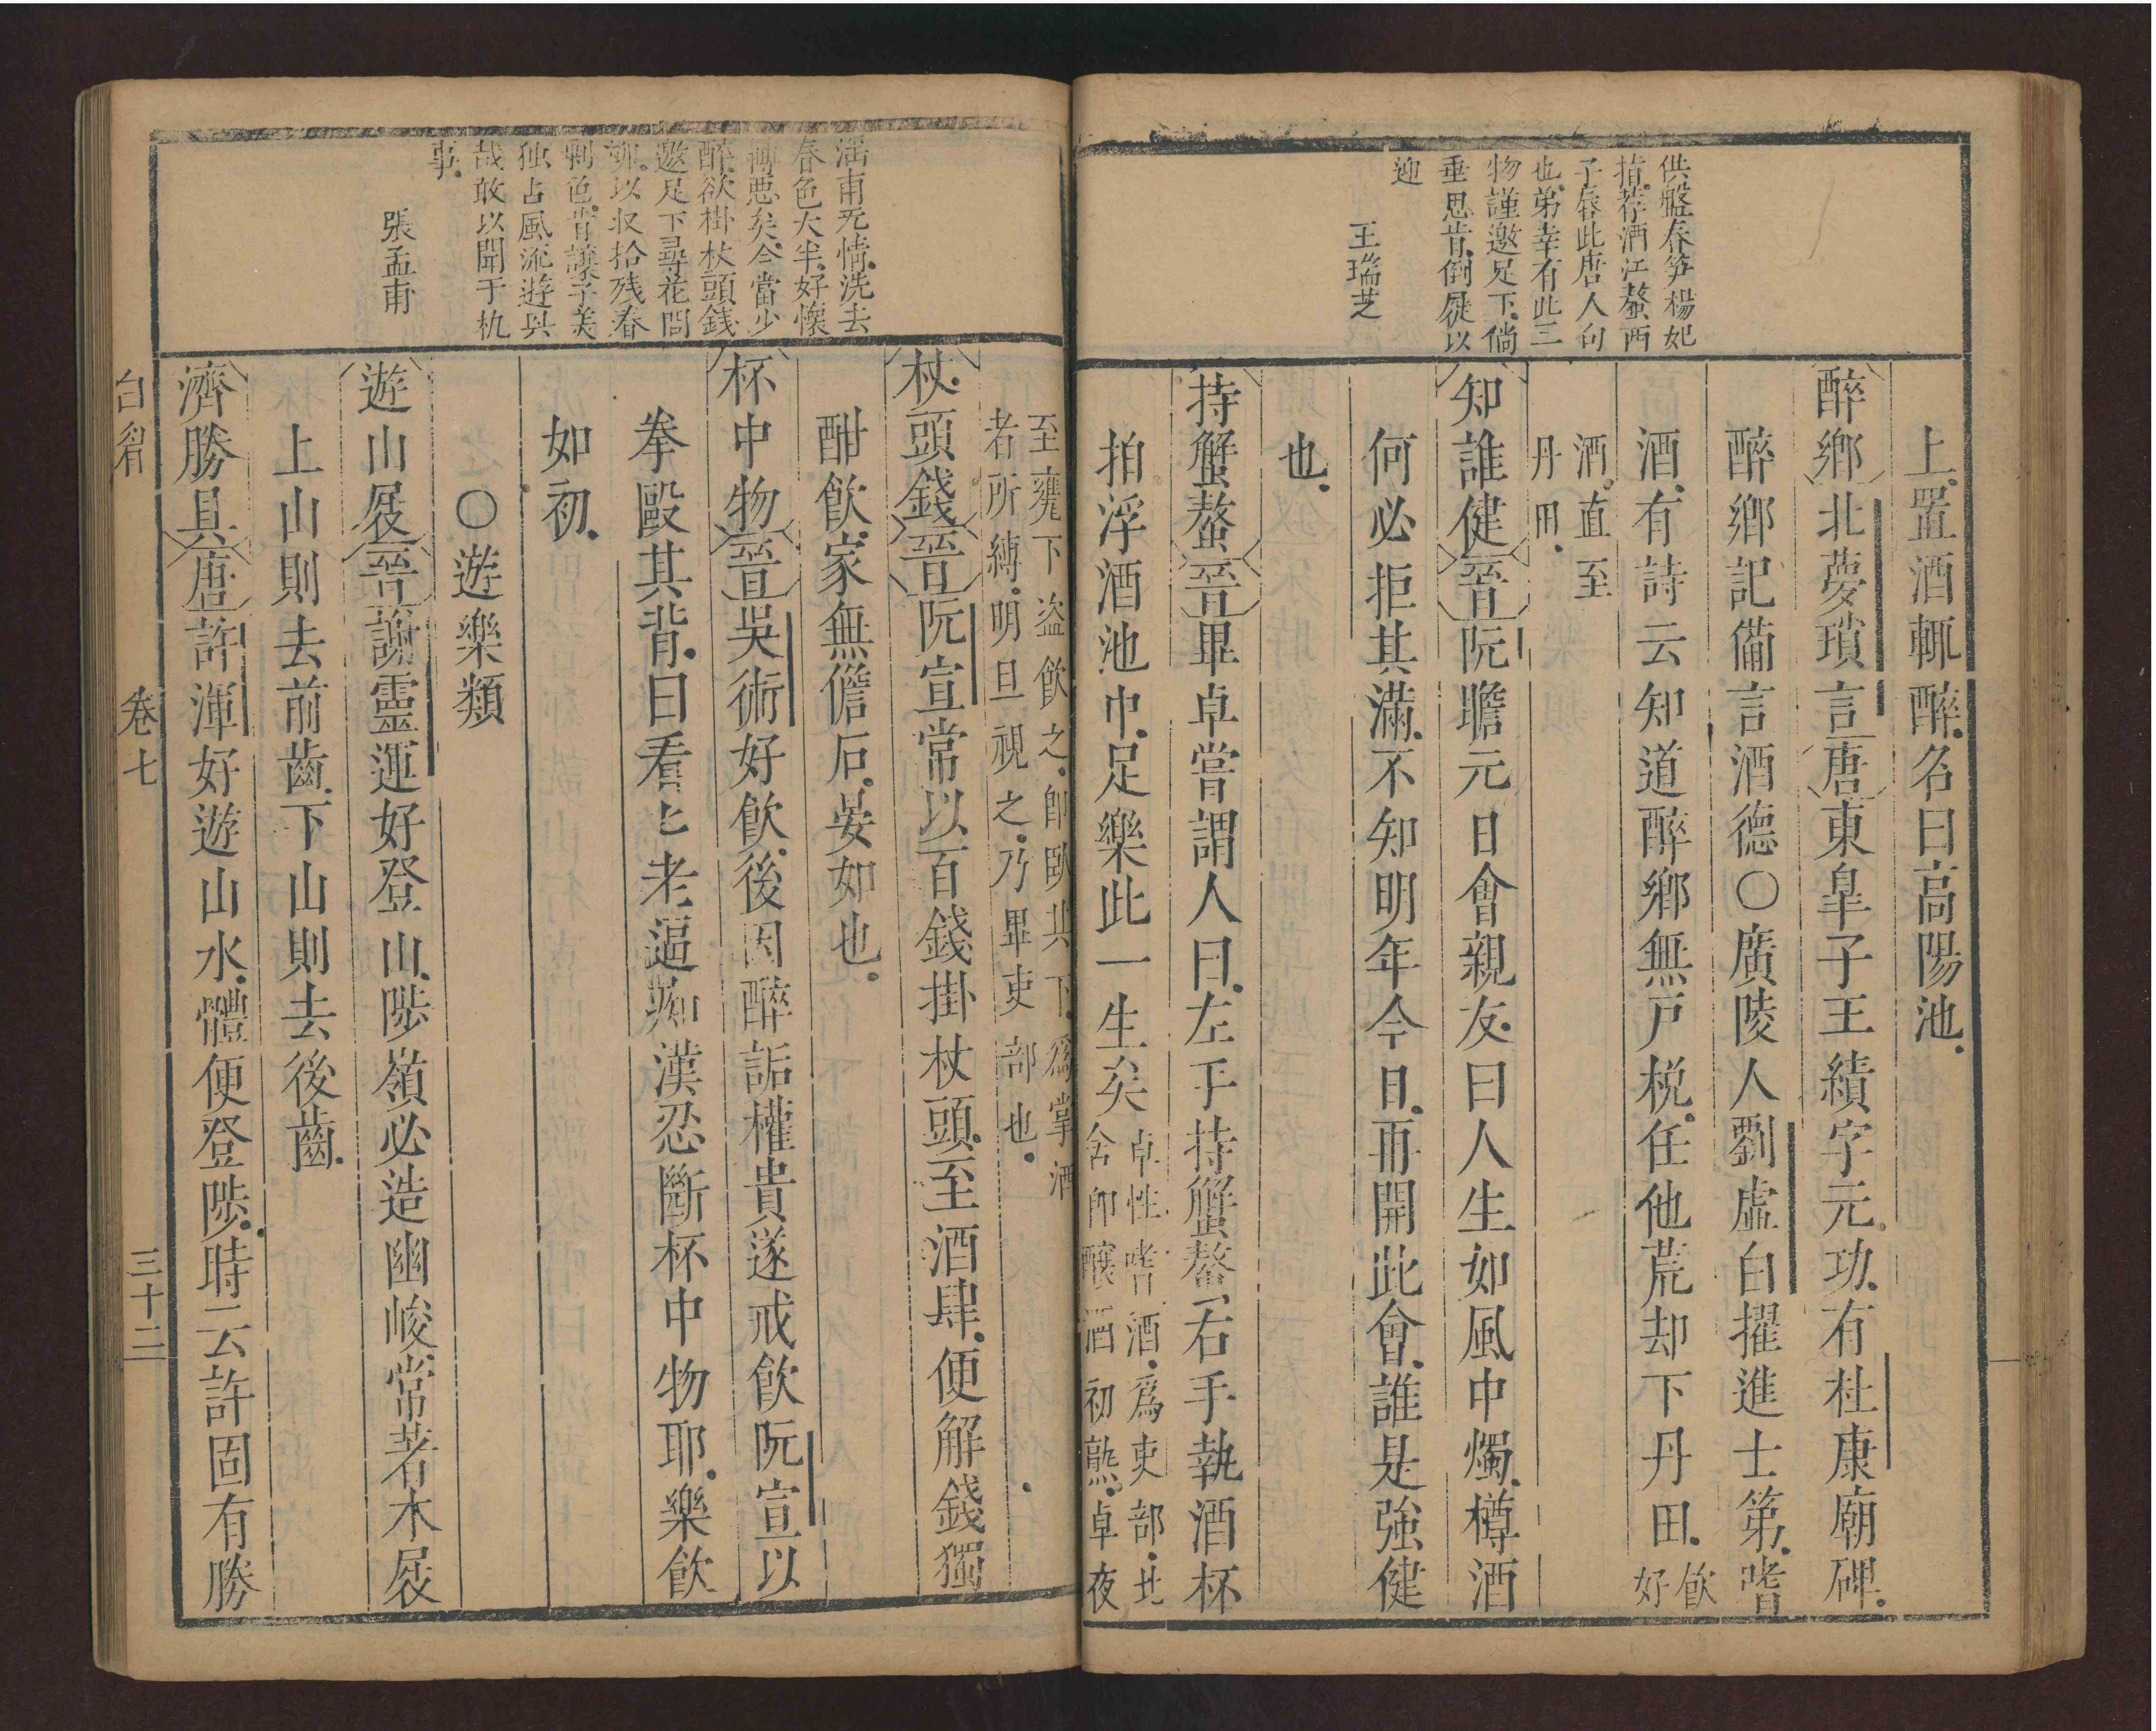 供盤春笋楊妃
指荐酒江螯西
子唇此唐人句
也弟幸有此三
物謹邀足下倘
垂思肯倒屣以
迎
王瑞芝
上置酒輒醉名曰高陽池
醉鄉北夢瑣言唐東皐子王績字元功有杜康廟碑
醉鄉記備言酒德〇廣陵人劉虛白擢進士第嗜
酒有詩云知道醉鄉無戸税任他荒却下丹田飲好
酒直至
丹田
知誰健晉阮瞻元日會親友曰人生如風中燭樽酒
何必拒其滿不知明年今日而開此會誰是強健
也
持蟹螯晉畢卓嘗謂人曰左手持蟹螯右手執酒杯
拍浮酒池中足樂此一生矣卓性嗜酒爲吏部北
舍郎釀酒初熟卓夜
雨无情洗去
春色大半好懷
惡矣今當少
醉欲掛杖頭錢
邀足下尋花問
柳以収拾残春
剩色肯讓子美
独占風流遊具
哉敢以聞于机
事
張孟甫
至甕下盗飲之即臥其下爲掌酒
者所縛明旦視之乃畢吏部也
杖頭錢晉阮宣常以百錢掛杖頭至酒肆便解錢獨
酣飲家無儋石晏如也
杯中物晉吳術好飲後因醉詬權貴遂戒飲阮宣以
拳毆其背曰看匕老逼癡漢忍斷杯中物耶樂飲
如初
〇遊樂類
遊山屐晉謝靈運好登山陟嶺必造幽峻常著木屐
上山則去前齒下山則去後齒
濟勝具唐許渾好遊山水體便登陟時云許固有勝
白眉
卷七
三十二